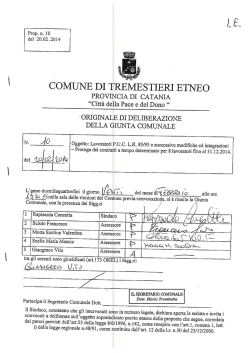 Prop. n. 10
del 20.02.2014
I.E.
COMUNE DI TREMESTIERI ETNEO
PROVINCIA DI CATANIA
"Città della Pace e del Dono"
ORIGINALE DI DELIBERAZIONE
DELLA GIUNTA COMUNALE
N. 10
del 20/02/2014
Oggetto: Lavoratori P.U.C. L.R. 85/95 e successive modifiche ed integrazioni
– Proroga dei contratti a tempo determinato per 8 lavoratori fino al 31.12.2014.
L'anno duemilaquattordici il giorno VENTI del mese FEBBRAIO alle ore
nella sala delle riunioni del Comune previa convocazione, si è riunita la Giunta
Comunale, con la presenza dei Sigg.ri
1 Rapisarda Concetta Sindaco P
2 Assessore P
3 Motta Santina Valentina Assessore P
4 Scalia Maria Messia Assessore P
5 Giangreco Vito Assessore A
tra gli assenti sono giustificati (art.173 OREL) i Sigg.ri
GIANGRECO VITO
IL SEGRETARIO COMUNALE
Partecipa il Segretario Comunale Dott.
Il Sindaco, constato che gli intervenuti sono in numero legale, dichiara aperta la seduta e invita i
convocati a deliberare sull'oggetto sopraindicato previo esame della proposta che segue, corredata
dai pareri previsti dall'art.53 della legge 8/6/1990, n.142, come recepito con l'art.1, comma 1, lett.
i) della legge regionale n.48/91, come sostituito dall'art. 12 della l.r. n.30 del 23/12/2000.